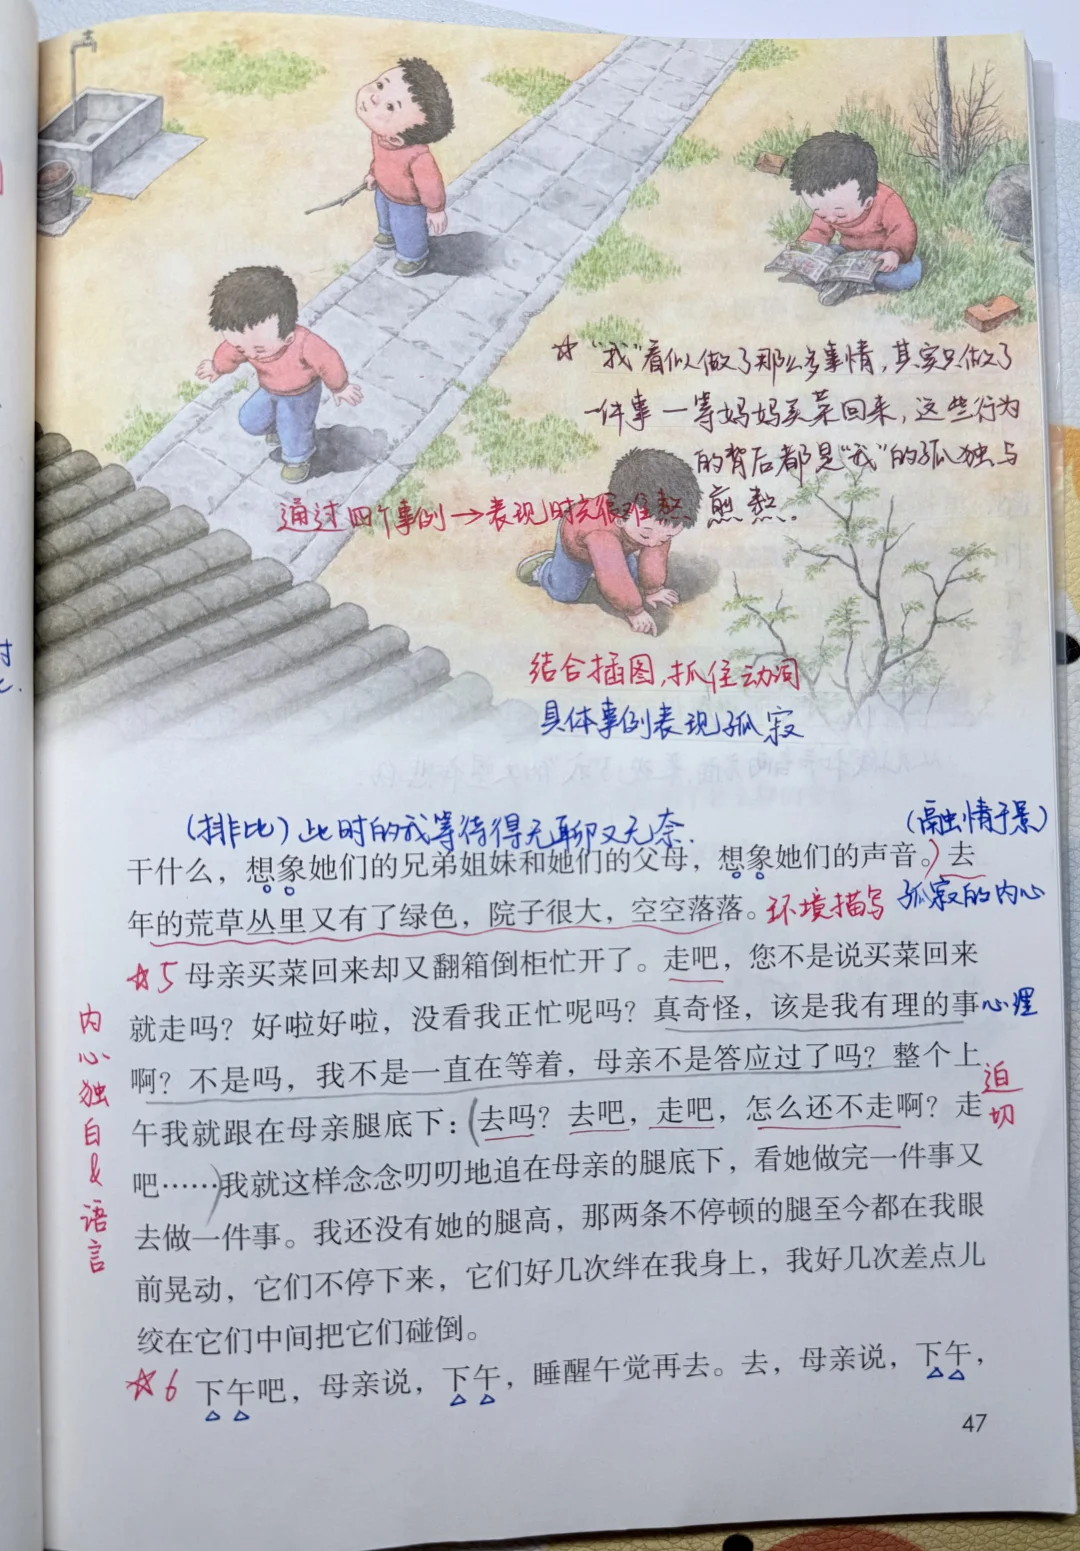 ☆"我"看似做了那么多事情，其实只做了
一件事—等妈妈买菜回来，这些行为
的背后都是"我"的孤独与
煎熬。
通过四个事例→表现时光很难熬
结合插图，抓住动词
具体事例表现孤寂
(排比)此时的我等待得无聊又无奈.
(融情于景)
干什么，想象她们的兄弟姐妹和她们的父母，想象她们的声音。)去
年的荒草丛里又有了绿色，院子很大，空空落落。环境描写 孤寂的内心
☆5 母亲买菜回来却又翻箱倒柜忙开了。走吧，您不是说买菜回来
就走吗？好啦好啦，没看我正忙呢吗？真奇怪，该是我有理的事 心理
啊？不是吗，我不是一直在等着，母亲不是答应过了吗？整个上
迫切
午我就跟在母亲腿底下：(去吗？去吧，走吧，怎么还不走啊？走
吧……)我就这样念念叨叨地追在母亲的腿底下，看她做完一件事又
去做一件事。我还没有她的腿高，那两条不停顿的腿至今都在我眼
前晃动，它们不停下来，它们好几次绊在我身上，我好几次差点儿
绞在它们中间把它们碰倒。
内心独白&语言
☆6 下午吧，母亲说，下午，睡醒午觉再去。去，母亲说，下午，
47